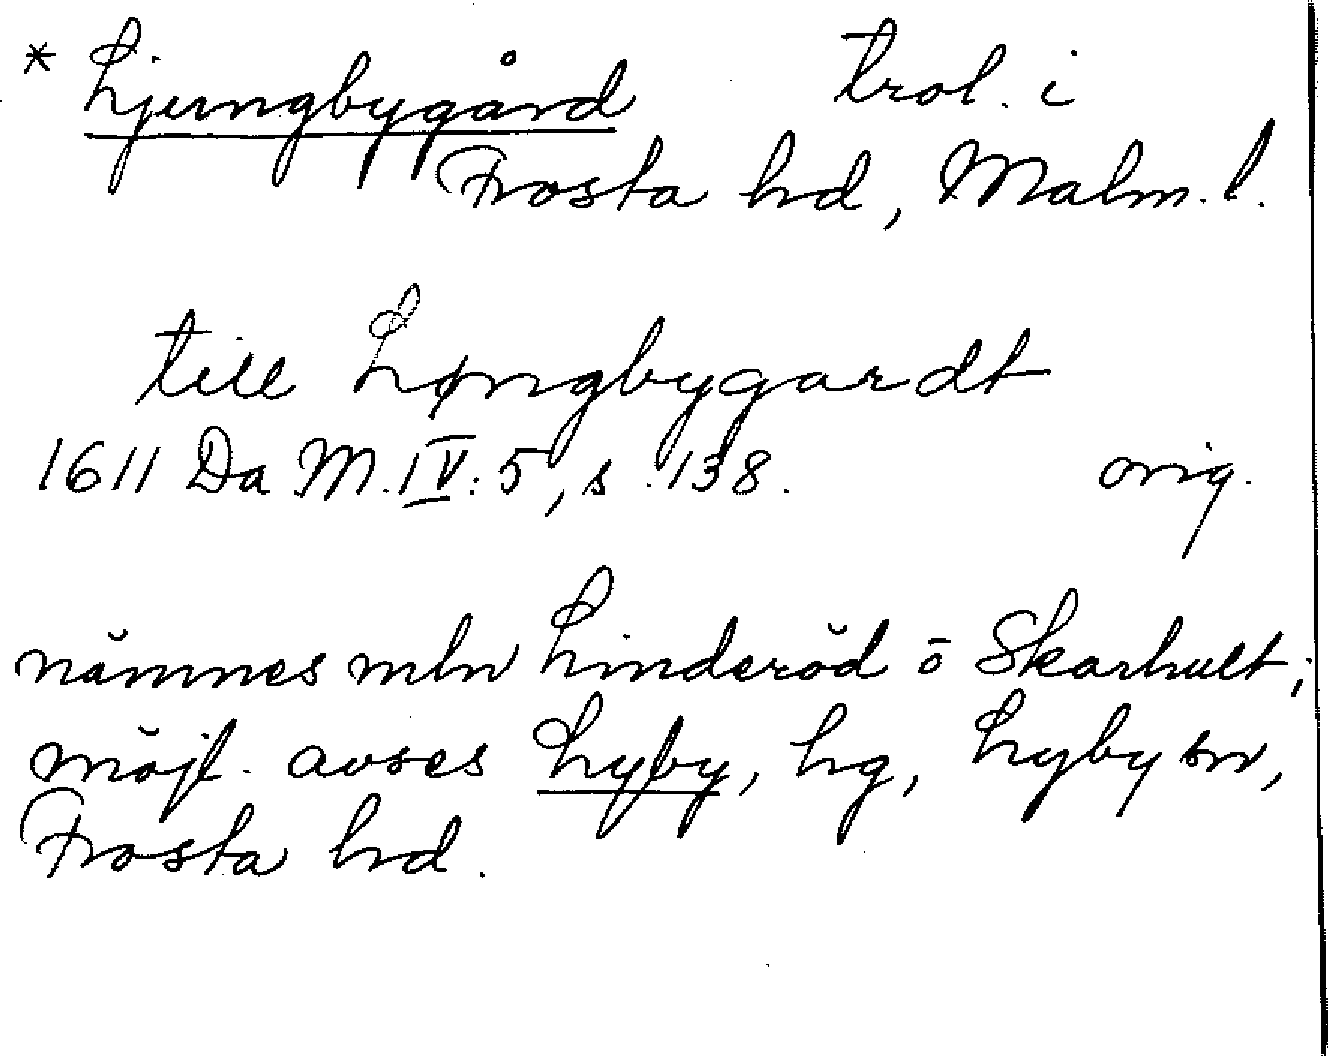 * Ljungbygård trol. i
Frosta hd, Malm. l.
till Løngbygardt
1611 Da M. IV: 5, s. 138. orig.
nämnes mln Linderöd o Skarhult;
möjl. avses Lyby, hg, Lyby sn,
Frosta hd.